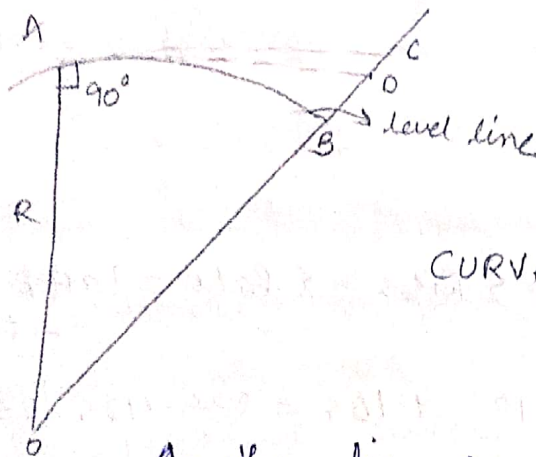 A
C
D
90°
level line
B
R
CURV
O